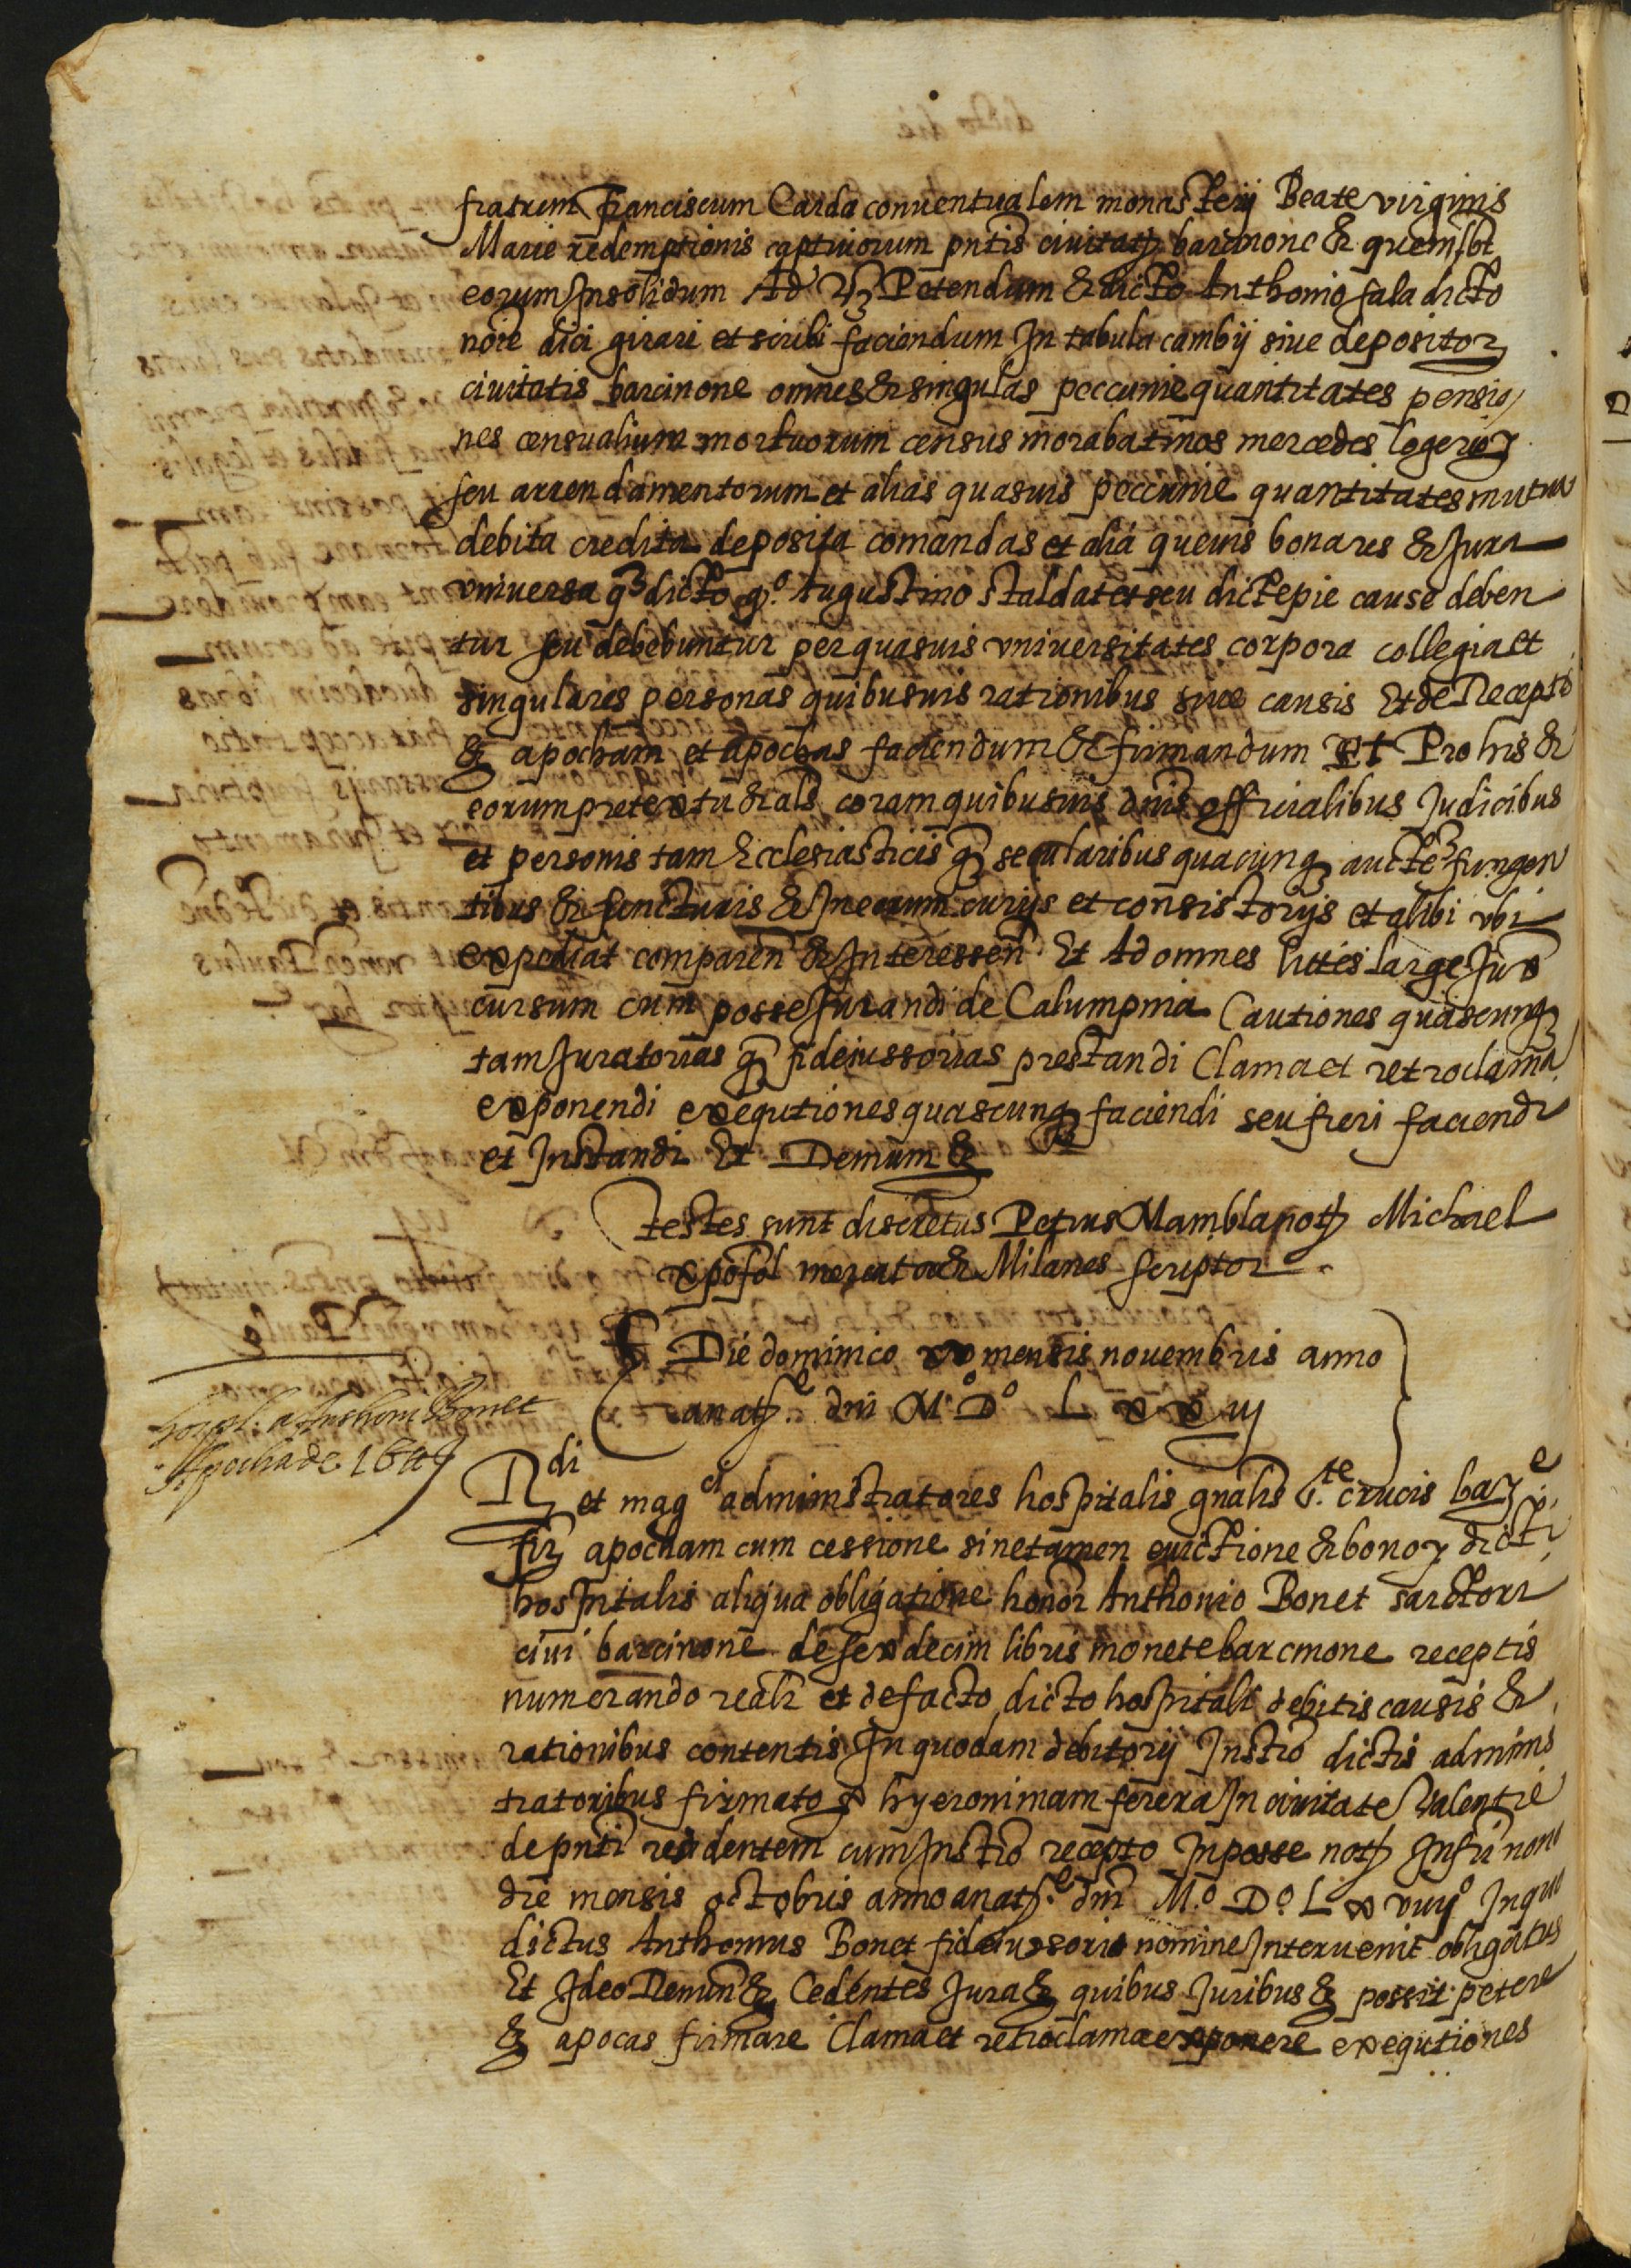 fratrem franciscum Carda conventualem monasterij Beate virginis
Marie redemptionis captivorum pntis civitatis barcinone & quemlbt
eorum Insolidum Ad Petendum & dicto Anthonio sala dicto
noie dici girari et scribi faciendum In tabula cambij sive depositor
civitatis barcinone omnes & singulas peccunie quantitates pensio
nes censualium mortuorum census morabatinos mercedes logerior
seu arrendamentorum et alias quasuis peccunie quantitates mutua
debita credita deposita comandas et alia quevis bona res & Jura
vniuersa dicto qo. Augustino staldat et seu dicte pie cause deben
tur seu debebuntur per quasuis vniuersitates corpora collegia et
singulares personas quibusuis rationibus siue causis Et de Recepto
& apocham et apochas faciendum & firmandum Et Pro his &
eorum pretextu & als coram quibusuis dnis officialibus Judicibus
et personis tam Ecclesiasticis secularibus quacunq aucte fungen
tibus & functuris & In eorum curijs et consistorijs et alibi vbi
expediat comparen & Interessen Et Ad omnes littes large Juo
cursum cum posse Jurandi de Calumpnia Cautiones quascunq
tam Juratorias fideiussorias prestandi Clama et retroclama
exponendi exequtiones quascunq faciendi seu fieri faciendi
et Instandi Et Demum &
testes sunt discretus Petrus Mambla not Michael
mercator & Milanes scriptor
Die dominico xv mensis novembris anno
anat. dni Mo Do L x x vij
hospl. a Anthoni Bonet
Apocha de 16
Rdi et magci administratores hospitalis gnalis Ste. crucis bar
fir apocham cum cessione sine tamen euictione & bonor dicti
hospitalis aliqua obligatione honor Anthonio Bonet sartori
ciui barcinone de sexdecim libris monete barcinone receptis
numerando realr et de facto dicto hospitali debitis causis &
rationibus contentis In quodam debitorij Instro dictis adminis
tratoribus firmato p hyeronimam ferera In ciuitate Valentie
de pnti residentem cum Instro recepto In posse not Infri nono
die mensis octobris anno anat. dni Mo. Do. L x viiijo In quo
dictus Anthonius Bonet fideiussorio nomine Interuenit obligatus
Et Ideo Renun & Cedentes Jura & quibus Juribus & possit petere
& apocas firmare Clama et retroclama exponere exequtiones